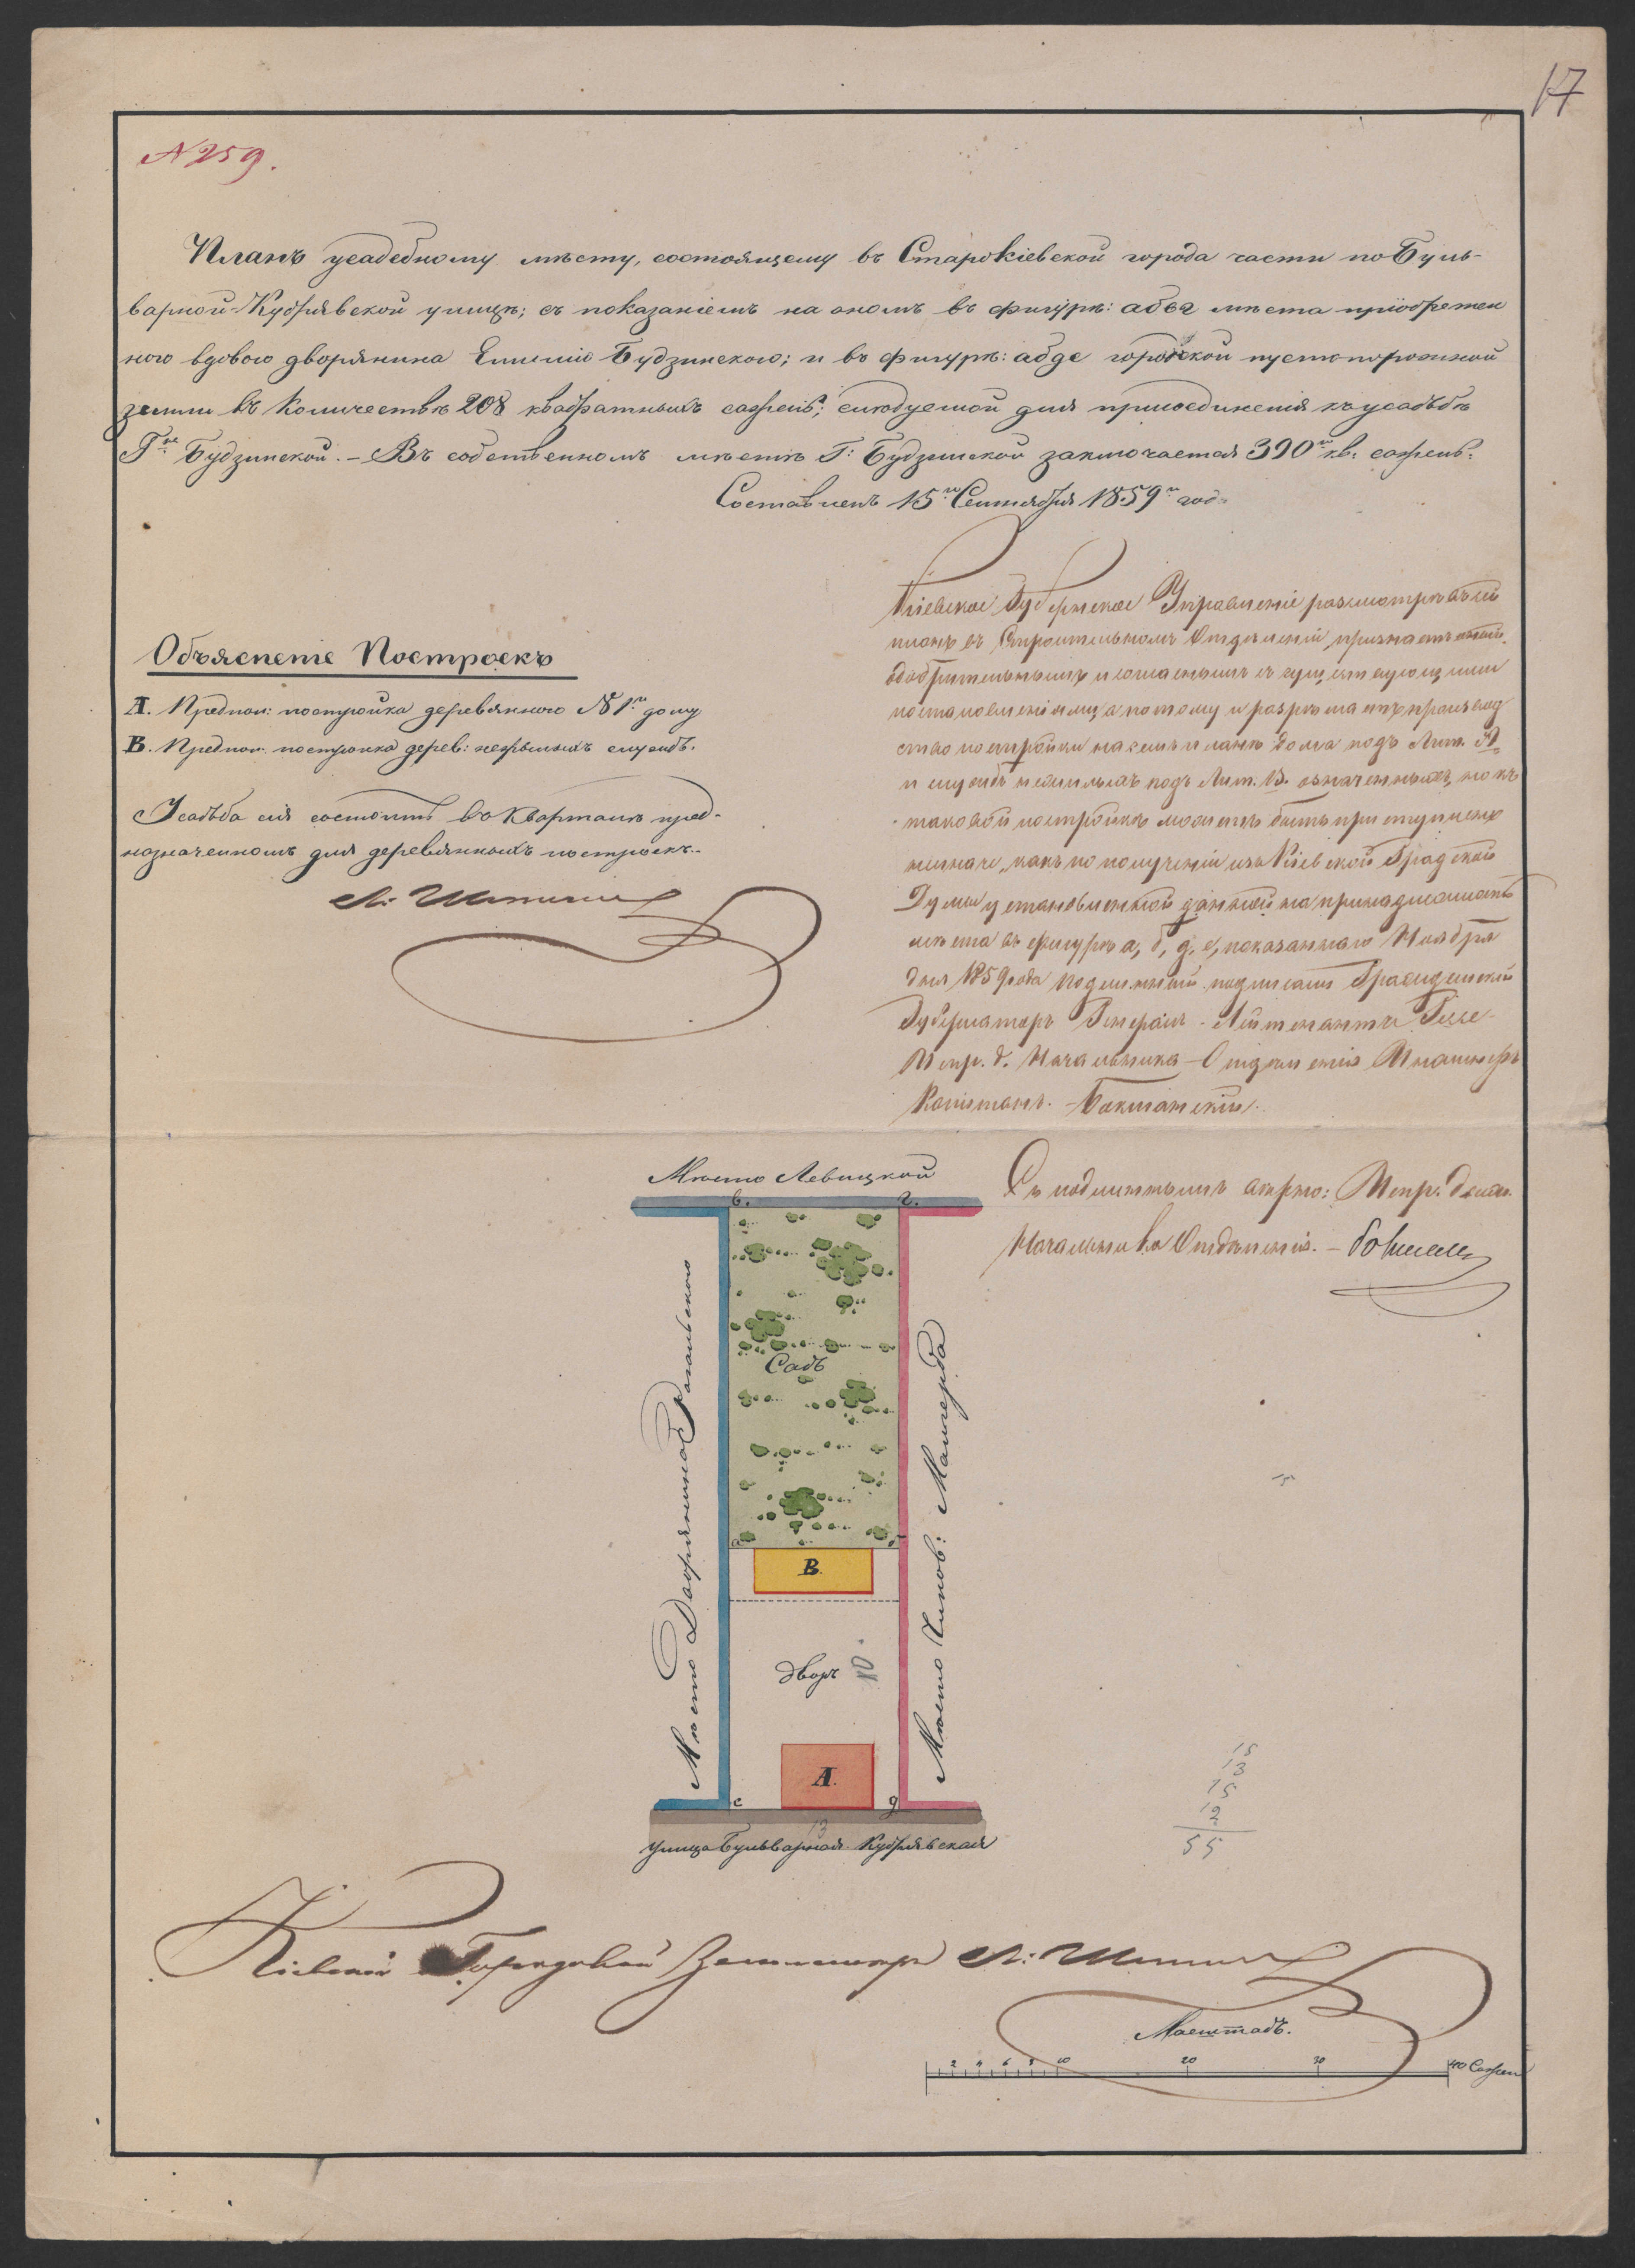 17
№ 259.
Планъ усадебному мѣсту, состоящему въ Старокіевской города части по Буль-
варной-Кудрявской улицѣ; съ показаніемъ на ономъ въ фигурѣ: абвг мѣста пріобрѣтен
ного вдовою дворянина Будзинскою; и въ фигурѣ: абде городской пустопорожней
земли въ количествѣ 208 квадратныхъ сажень; слѣдуемой для присоединенія къ усадьбѣ
Гжи Будзинской. – Въ собственномъ мѣстѣ Г: Будзинской заключается 390 кв. сажень.
Составленъ 15го Сентября 1859го года
Кіевское Губернское Управленіе разсмотрѣвъ сей
планъ въ Строительномъ Отдѣленіи, признаетъ оный
удобрительнымъ и согласнымъ съ существующими
постановленіями, а потому и разрѣшаетъ производ
ство постройки на семъ планѣ дома подъ Лит. А
и службъ нежилыхъ подъ Лит. В. означенныхъ, но къ
таковой постройкѣ можетъ быть приступлено
неиначе, какъ по полученіи изъ Кіевской Градской
Думы установленной данной на
мѣста въ фигурѣ а, б, д, е, показаннаго Ноября
дня 1859 года Подлинный подписали Гражданскій
Губернаторъ Генералъ-Лейтенантъ Гессе
Испр. д. Начальника Отдѣленія Инженеръ
Капитанъ.
Объясненіе Построекъ
А. Предпол: постройка деревянного № 1го дому
В. Предпол: постройка дерев: нежилыхъ службъ.
Усадьба сія состоитъ въ Кварталѣ пред-
назначенномъ для деревянныхъ построекъ.
Съ подлиннымъ вѣрно: Испр. должн.
Начальника Отдѣленія. –
Мѣсто Левицкой
в. г.
Садъ
Мѣсто Дворянина
Мѣсто Чинов:
а б
В.
дворъ 10
А.
е д
13
улица Бульварная-Кудрявская
15
13
15
12
55
Кіевскій Городовой Землемѣръ
Масштабъ.
2 4 6 8 10 20 30 40 Сажен